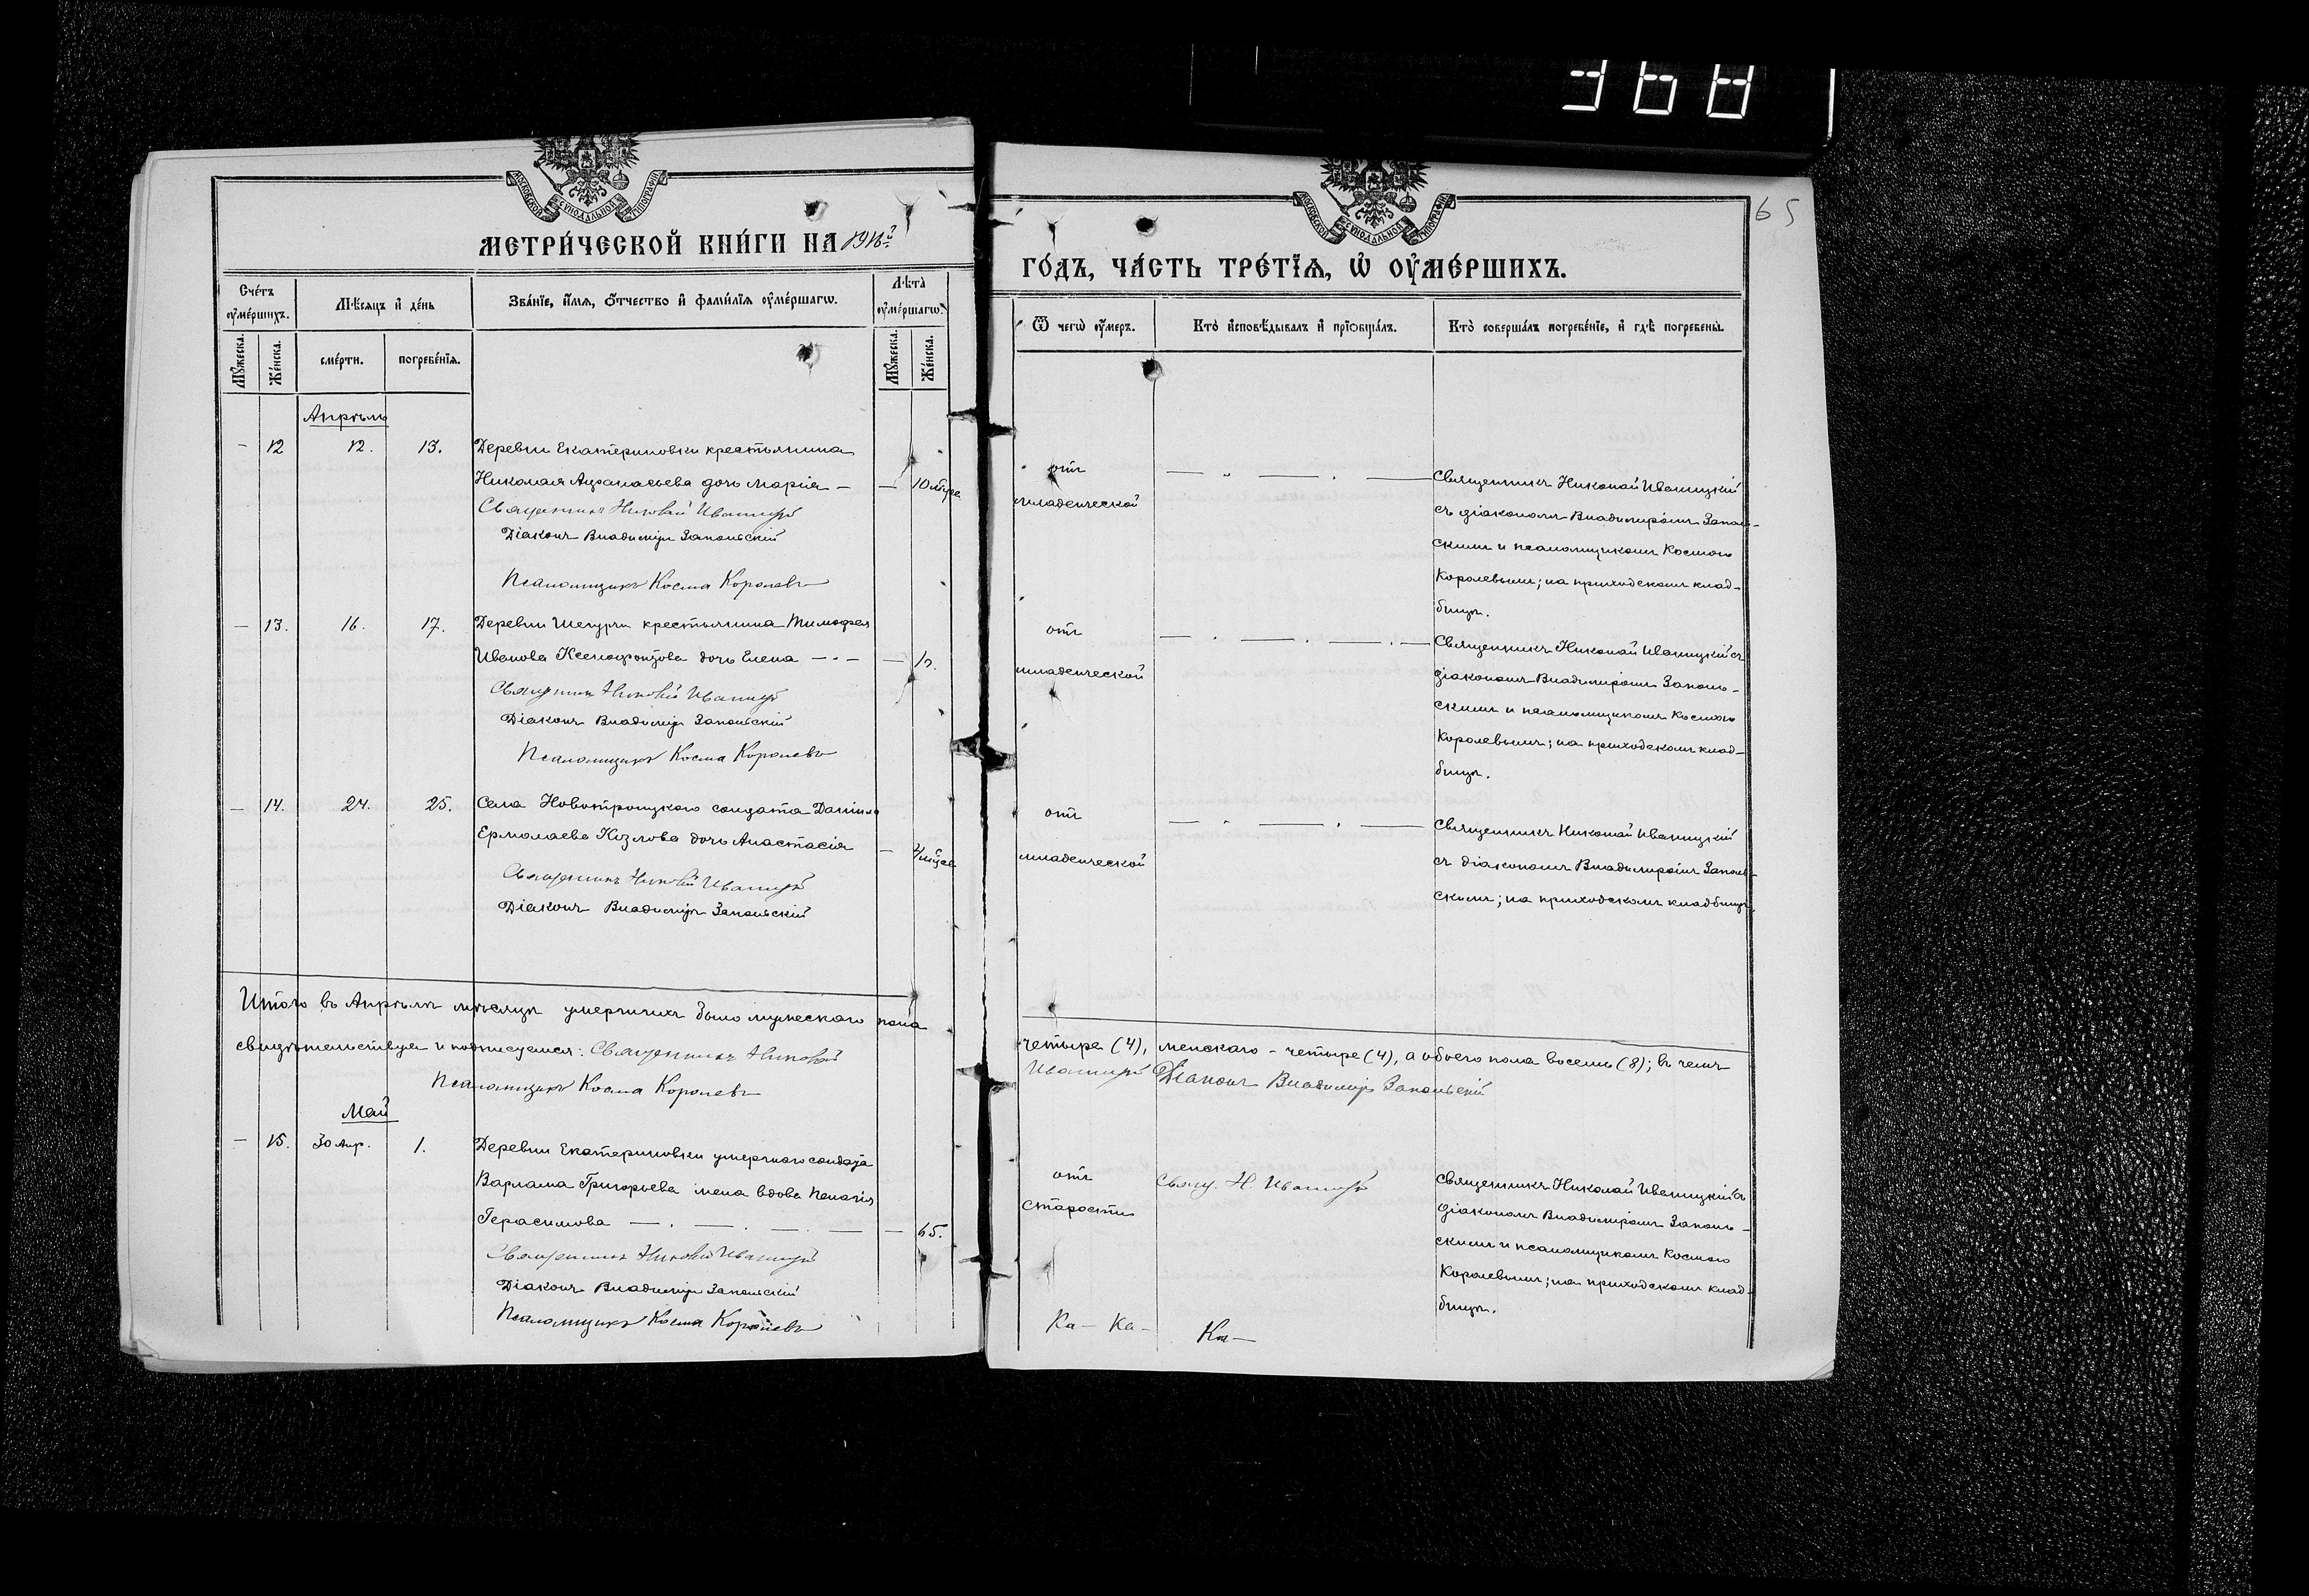 368
65
МОСКОВСКОЙ СѴНОДАЛЬНОЙ ТИПОГРАФІИ
МЕТРИ́ЧЕСКОЙ КНИ́ГИ НА
МОСКОВСКОЙ СѴНОДАЛЬНОЙ ТИПОГРАФІИ
ГО́ДЪ, ЧА́СТЬ ТРЕ́ТІѦ, Ѡ ОУМЕ́РШИХЪ.
Сче́тъ оуме́ршихъ.
Мѣсяцъ и де́нь
Зва́нїе, и́мя, о́тчество и фами́лїя оуме́ршагѡ.
Лѣта̀ оуме́ршагѡ.
Мꙋжеска.
Же́нска.
сме́рти.
погребе́нїя.
Мꙋжеска.
Же́нска.
Ѿ чегѡ̀ оу́меръ.
Кто̀ исповѣ́дывалъ и прїѡбща́лъ.
Кто̀ соверша́лъ погребе́нїе, и гдѣ̀ погребены̀.
Апрѣль
- 12 12. 13. Деревни Екатериновки крестьянина
Николая Аѳанасьева дочь Марія — — 10 мѣс.
Священникъ Николай Иваницкій
Діаконъ Владиміръ Запольскій
Псаломщикъ Косма Королевъ
отъ
младенческой
Священникъ Николай Иваницкій
съ діакономъ Владиміромъ Заполь-
скимъ и псаломщикомъ Космою
Королевымъ; на приходскомъ клад-
бищѣ.
— 13. 16. 17. Деревни крестьянина Тимофея
Иванова Ксенофонтова дочь Елена — . — —
Священникъ Николай Иваницкій
Діаконъ Владиміръ Запольскій
Псаломщикъ Косма Королевъ
отъ
младенческой
Священникъ Николай Иваницкій съ
діакономъ Владиміромъ Заполь-
скимъ и псаломщикомъ Космою
Королевымъ; на приходскомъ клад-
бищѣ.
— 14. 24. 25. Села Новотроицкаго солдата Даніила
Ермолаева Козлова дочь Анастасія —
Священникъ Николай Иваницкій
Діаконъ Владиміръ Запольскій
отъ
младенческой
Священникъ Николай Иваницкій
съ діакономъ Владиміромъ Заполь-
скимъ; на приходскомъ кладбищѣ.
Итого въ Апрѣлѣ мѣсяцѣ умершихъ было мужескаго пола
четыре (4), женскаго - четыре (4), а обоего пола восемь (8); въ чемъ
свидѣтельствуемъ и подписуемся: Священникъ Николай
Иваницкій Діаконъ Владиміръ Запольскій
Псаломщикъ Косма Королевъ
Май
— 15. 30 Апр. 1. Деревни Екатериновки умершаго солдата
Варлама Григорьева жена вдова Пелагія
Герасимова — . — . — — — 65.
Священникъ Николай Иваницкій
Діаконъ Владиміръ Запольскій
Псаломщикъ Косма Королевъ
отъ
старости
Свящ. Н. Иваницкій
Священникъ Николай Иваницкій съ
діакономъ Владиміромъ Заполь-
скимъ и псаломщикомъ Космою
Королевымъ; на приходскомъ клад-
бищѣ.
Ка— Ка— Ка—